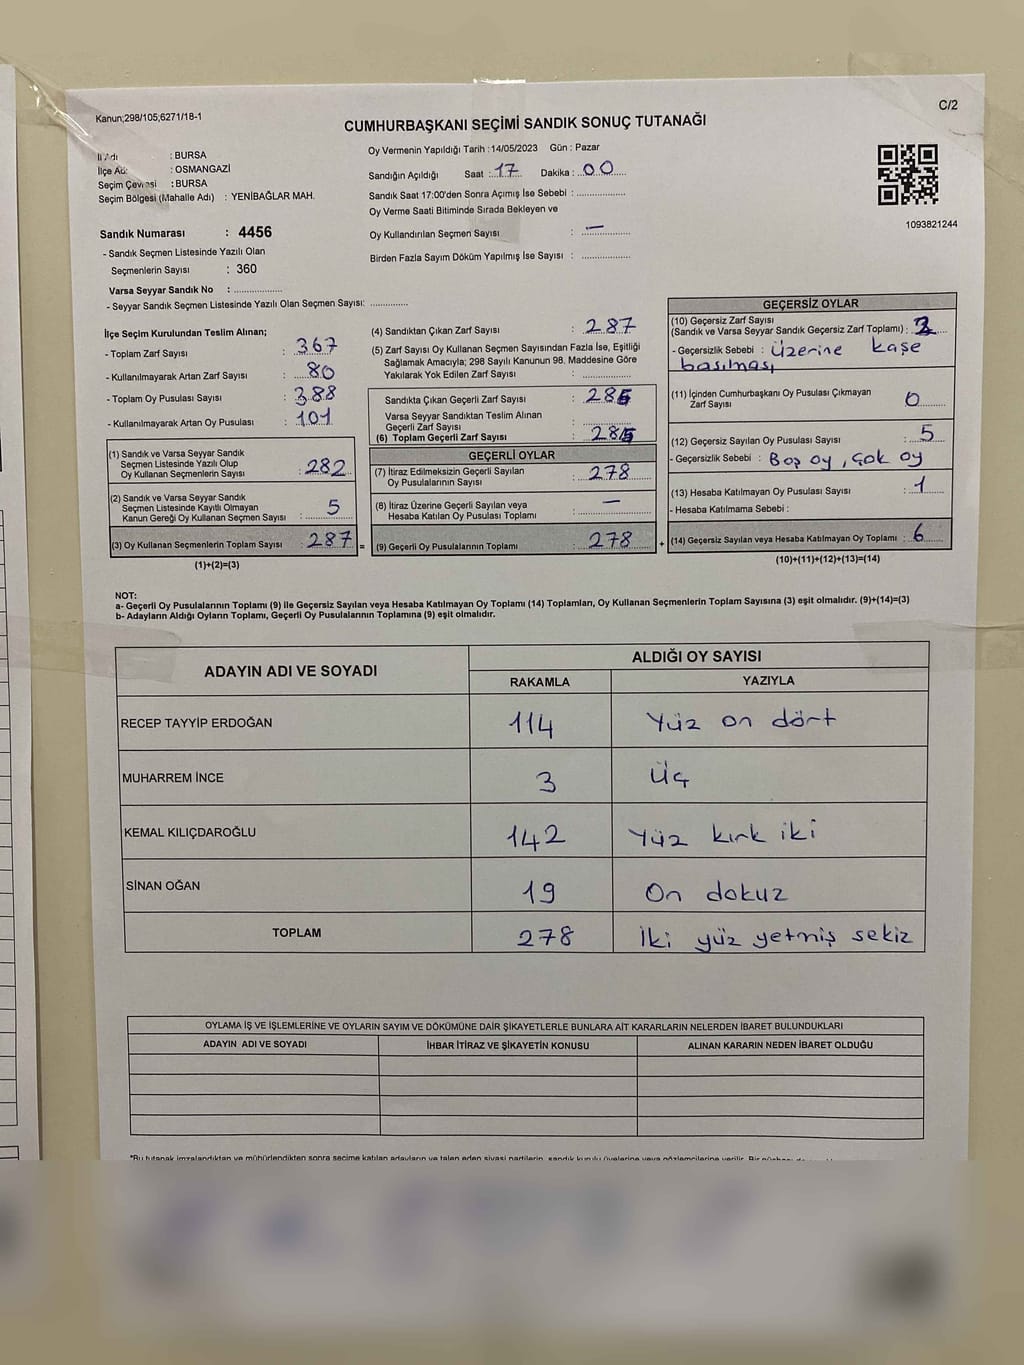 Kanun;298/105;6271/18-1
C/2
CUMHURBAŞKANI SEÇİMİ SANDIK SONUÇ TUTANAĞI
İl Adı : BURSA
İlçe Adı : OSMANGAZİ
Seçim Çevresi : BURSA
Seçim Bölgesi (Mahalle Adı) : YENİBAĞLAR MAH.
Oy Vermenin Yapıldığı Tarih : 14/05/2023 Gün : Pazar
Sandığın Açıldığı Saat : 17 Dakika : 00
Sandık Saat 17:00'den Sonra Açımış İse Sebebi : ..................
Oy Verme Saati Bitiminde Sırada Bekleyen ve
Oy Kullandırılan Seçmen Sayısı : —
Birden Fazla Sayım Döküm Yapılmış İse Sayısı : ..................
1093821244
Sandık Numarası : 4456
- Sandık Seçmen Listesinde Yazılı Olan
Seçmenlerin Sayısı : 360
Varsa Seyyar Sandık No : ..................
- Seyyar Sandık Listesinde Yazılı Olan Seçmen Sayısı: ..............
İlçe Seçim Kurulundan Teslim Alınan;
- Toplam Zarf Sayısı : 367
- Kullanılmayarak Artan Zarf Sayısı : 80
- Toplam Oy Pusulası Sayısı : 388
- Kullanılmayarak Artan Oy Pusulası : 101
(1) Sandık ve Varsa Seyyar Sandık
Seçmen Listesinde Yazılı Olup
Oy Kullanan Seçmenlerin Sayısı : 282
(2) Sandık ve Varsa Seyyar Sandık
Seçmen Listesinde Kayıtlı Olmayan
Kanun Gereği Oy Kullanan Seçmen Sayısı : 5
(3) Oy Kullanan Seçmenlerin Toplam Sayısı : 287 =
(1)+(2)=(3)
(4) Sandıktan Çıkan Zarf Sayısı : 287
(5) Zarf Sayısı Oy Kullanan Seçmen Sayısından Fazla İse, Eşitliği
Sağlamak Amacıyla; 298 Sayılı Kanunun 98. Maddesine Göre
Yakılarak Yok Edilen Zarf Sayısı : ..................
Sandıkta Çıkan Geçerli Zarf Sayısı :
Varsa Seyyar Sandıktan Teslim Alınan
Geçerli Zarf Sayısı : ..................
(6) Toplam Geçerli Zarf Sayısı :
GEÇERLİ OYLAR
(7) İtiraz Edilmeksizin Geçerli Sayılan
Oy Pusulalarının Sayısı : 278
(8) İtiraz Üzerine Geçerli Sayılan veya
Hesaba Katılan Oy Pusulası Toplamı : —
(9) Geçerli Oy Pusulalarının Toplamı : 278 +
GEÇERSİZ OYLAR
(10) Geçersiz Zarf Sayısı
(Sandık ve Varsa Seyyar Sandık Geçersiz Zarf Toplamı) :
- Geçersizlik Sebebi : Üzerine kaşe
basılması
(11) İçinden Cumhurbaşkanı Oy Pusulası Çıkmayan
Zarf Sayısı : 0
(12) Geçersiz Sayılan Oy Pusulası Sayısı : 5
- Geçersizlik Sebebi : Boş oy, çok oy
(13) Hesaba Katılmayan Oy Pusulası Sayısı : 1
- Hesaba Katılmama Sebebi :
(14) Geçersiz Sayılan veya Hesaba Katılmayan Oy Toplamı : 6
(10)+(11)+(12)+(13)=(14)
NOT:
a- Geçerli Oy Pusulalarının Toplamı (9) ile Geçersiz Sayılan veya Hesaba Katılmayan Oy Toplamı (14) Toplamları, Oy Kullanan Seçmenlerin Toplam Sayısına (3) eşit olmalıdır. (9)+(14)=(3)
b- Adayların Aldığı Oyların Toplamı, Geçerli Oy Pusulalarının Toplamına (9) eşit olmalıdır.
ADAYIN ADI VE SOYADI ALDIĞI OY SAYISI
RAKAMLA YAZIYLA
RECEP TAYYİP ERDOĞAN 114 Yüz on dört
MUHARREM İNCE 3 Üç
KEMAL KILIÇDAROĞLU 142 Yüz kırk iki
SİNAN OĞAN 19 On dokuz
TOPLAM 278 İki yüz yetmiş sekiz
OYLAMA İŞ VE İŞLEMLERİNE VE OYLARIN SAYIM VE DÖKÜMÜNE DAİR ŞİKAYETLERLE BUNLARA AİT KARARLARIN NELERDEN İBARET BULUNDUKLARI
ADAYIN ADI VE SOYADI İHBAR İTİRAZ VE ŞİKAYETİN KONUSU ALINAN KARARIN NEDEN İBARET OLDUĞU
*Bu tutanak imzalandıktan ve mühürlendikten sonra seçime katılan adayların ve talep eden siyasi partilerin, sandık kurulu üyelerine veya gözlemcilerine verilir.